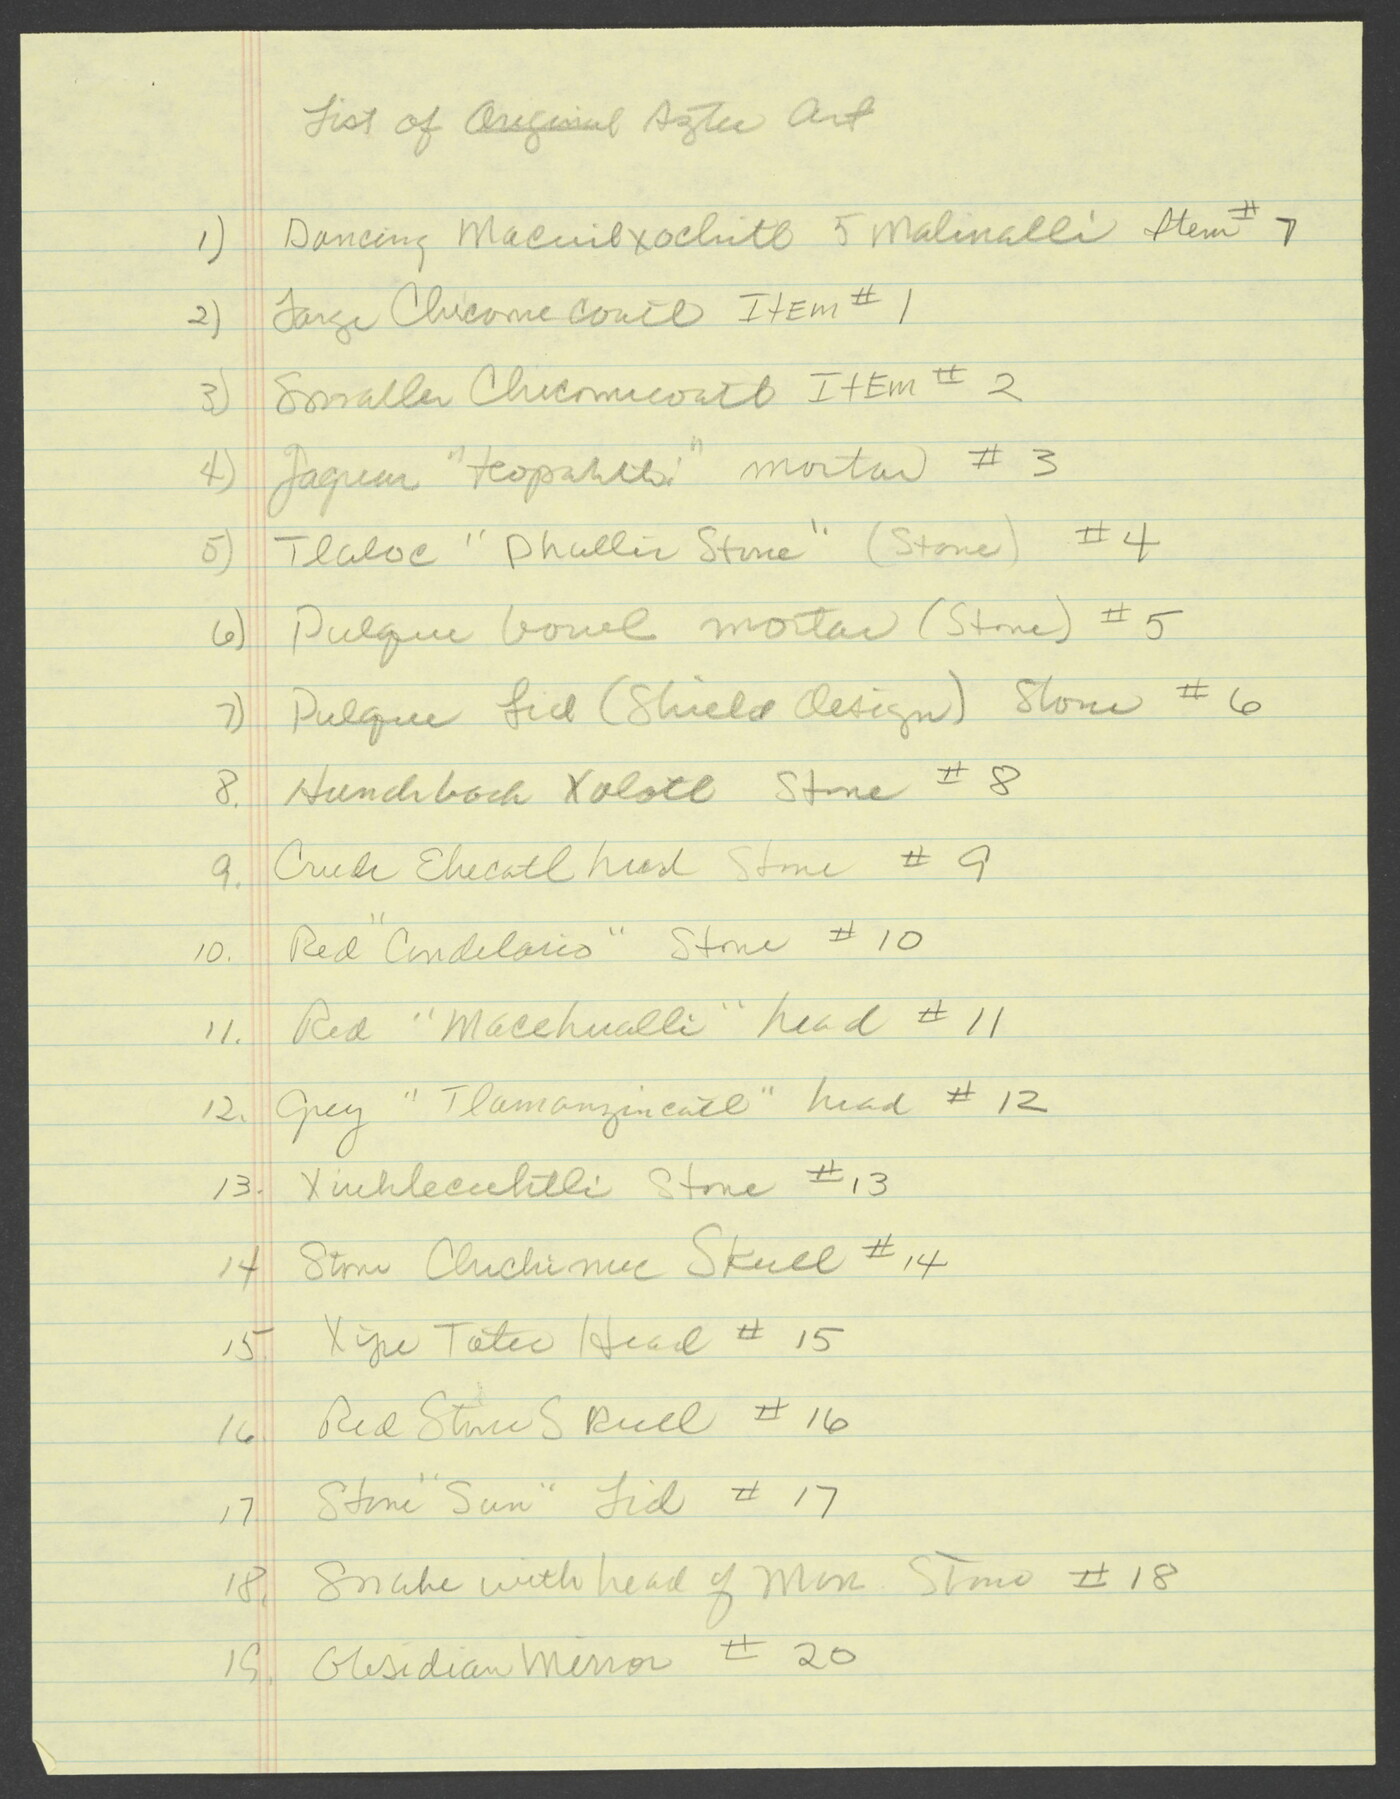 List of Original Aztec Art
1) Dancing Macuilxochitl 5 Malinalli Item # 7
2) Large Chicomecoatl Item # 1
3) Smaller Chicomecoatl Item # 2
4) Jaguar "teopahtli" mortar # 3
5) Tlaloc "Phallic Stone" (Stone) # 4
6) Pulque bowl mortar (Stone) # 5
7) Pulque Lid (Shield design) Stone # 6
8. Hunchback Xolotl Stone # 8
9. Crude Ehecatl head Stone # 9
10. Red "Candelario" Stone # 10
11. Red "Macehualli" head # 11
12. Grey "Tlamanzincatl" head # 12
13. Xiuhtecuhtli Stone # 13
14 Stone Chichimec Skull # 14
15 Xipe Totec Head # 15
16 Red Stone Skull # 16
17 Stone "Sun" Lid # 17
18. Snake with head of Man. Stone # 18
19. Obsidian Mirror # 20